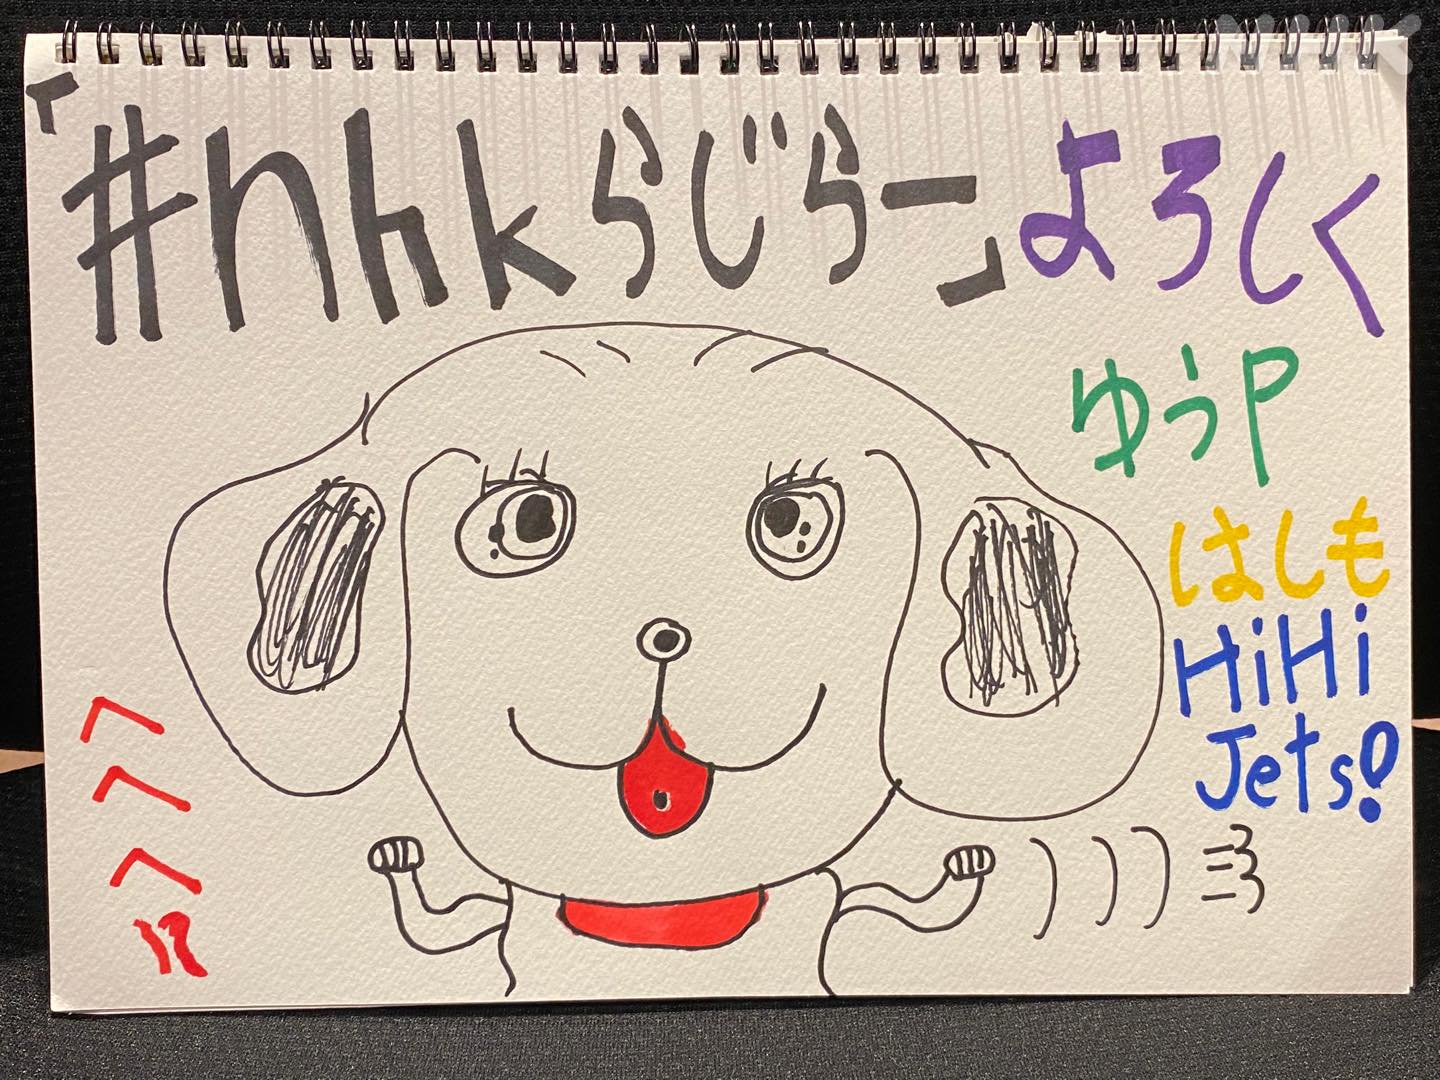 「#nhkらじらー」よろしく
ゆうP
はしも
HiHi
Jets!
へへへ
NHK